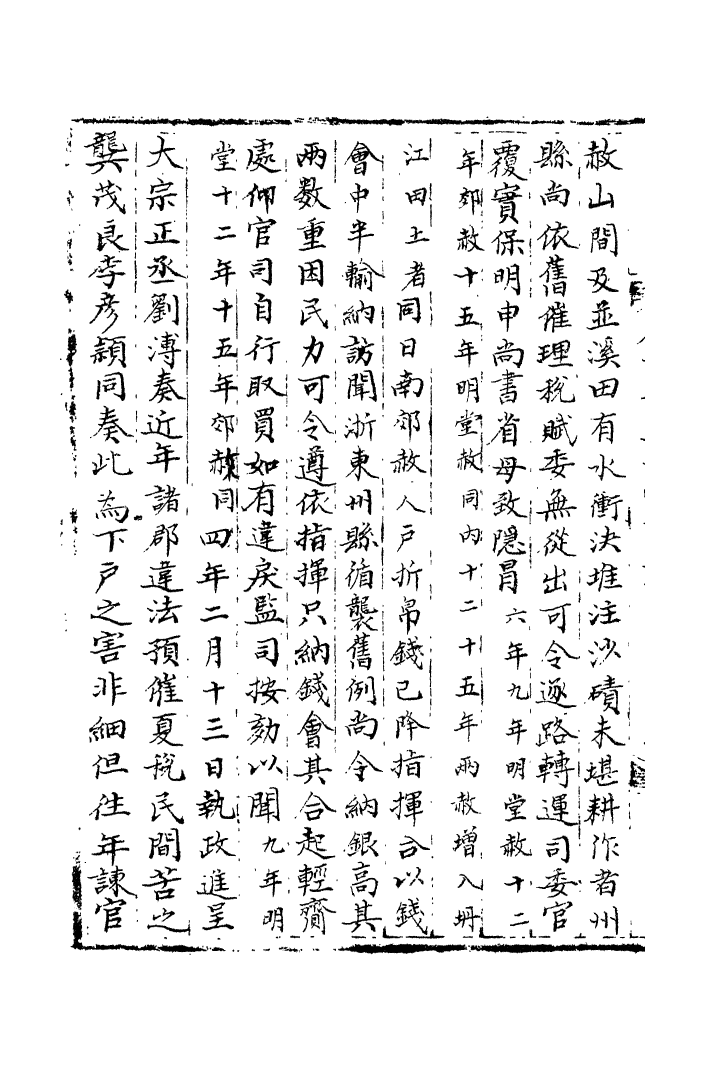 赦山間及並溪田有水衝決堆注沙磧未堪耕作者州
縣尚依舊催理稅賦委無從出可令逐路轉運司委官
覆實保明申尚書省毋致隱冒六年九年明堂赦十二
年郊赦十五年明堂赦同內十二十五年兩赦增入坍
江田土者同日南郊赦人戶折帛錢已降指揮合以錢
會中半輸納訪聞浙東州縣循襲舊例尚令納銀高其
兩數重困民力可令遵依指揮只納錢會其合起輕齎
處仰官司自行取買如有違戾監司按劾以聞九年明
堂十二年十五年郊赦同四年二月十三日執政進呈
大宗正丞劉溥奏近年諸郡違法預催夏稅民間苦之
龔茂良李彥穎同奏此為下戶之害非細但往年諫官